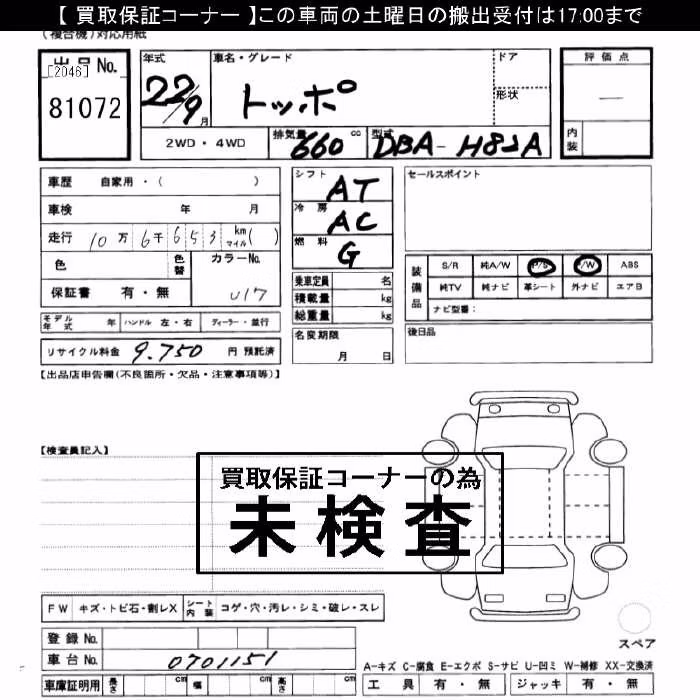 【 買取保証コーナー 】この車両の土曜日の搬出受付は17:00まで
(複合機)対応用紙
出品 No.
[2046]
81072
年式
22/9月
車名・グレード
トッポ
ドア
形状
評価点
—
内装
2WD・4WD
排気量 660 cc
型式 DBA-H82A
車歴 自家用・( )
車検 年 月
走行 10万6千653 km マイル( )
色
色替
カラーNo.
U17
保証書 有・無
シフト AT
冷房 AC
燃料 G
乗車定員 名
積載量 kg
総重量 kg
セールスポイント
装備品
S/R 純A/W P/S P/W ABS
純TV 純ナビ 革シート 外ナビ エアB
ナビ型番:
モデル年式 年 ハンドル 左・右 ディーラー・並行
名変期限
月 日
後日品
リサイクル料金 9.750 円 預託済
【出品店申告欄(不良箇所・欠品・注意事項等)】
【検査員記入】
買取保証コーナーの為
未検査
FW キズ・トビ石・割レX シート内装 コゲ・穴・汚レ・シミ・破レ・スレ
スペア
登録 No.
車台 No. 0701151
A-キズ C-腐食 E-エクボ S-サビ U-凹ミ W-補修 XX-交換済
車庫証明用 長さ cm 幅 cm 高さ cm
工具 有・無 ジャッキ 有・無